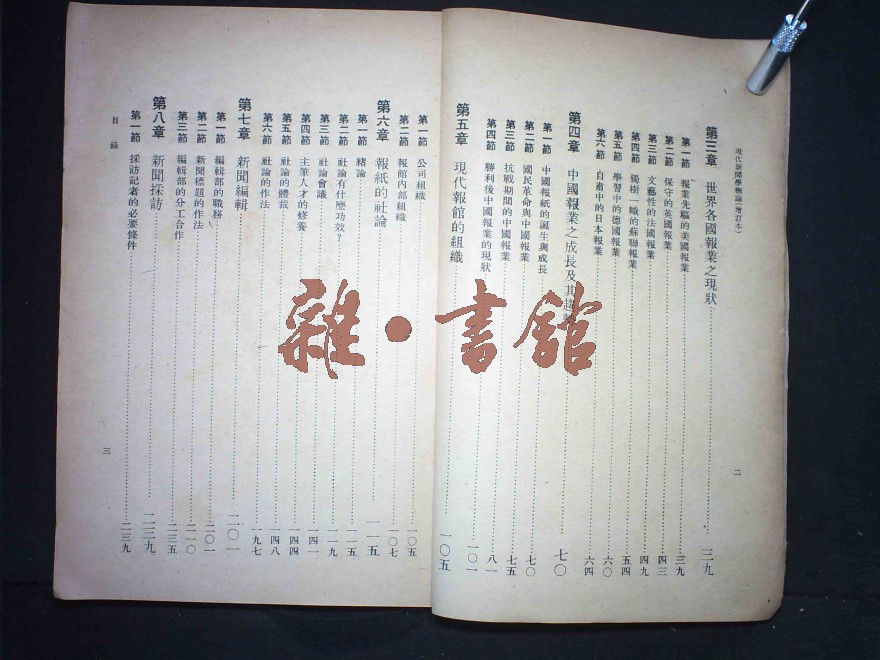 現代新聞學概論(增訂本) 二
第三章 世界各國報業之現狀 三九
第一節 報業先驅的美國報業 三九
第二節 保守的英國報業 四三
第三節 文藝性的法國報業 四九
第四節 獨樹一幟的蘇聯報業 五四
第五節 學習中的德國報業 六〇
第六節 自肅中的日本報業 六四
第四章 中國報業之成長及其趨 七〇
第一節 中國報紙的誕生與成長 七〇
第二節 國民革命與中國報業 七五
第三節 抗戰期間的中國報業 八一
第四節 勝利後中國報業的現狀 一〇一
第五章 現代報館的組織 一〇五
第一節 公司組織 一〇五
第二節 報館內部組織 一〇七
第六章 報紙的社論 一一五
第一節 緒論 一一五
第二節 社論有什麼功效? 一一九
第三節 社論會議 一四一
第四節 主筆人才的修養 一四四
第五節 社論的體裁 一四八
第六節 社論的作法 一九七
第七章 新聞編輯 二〇一
第一節 編輯部的職務 二〇一
第二節 新聞標題的作法 二一〇
第三節 編輯部的分工合作 二三五
第八章 新聞採訪 二三九
第一節 採訪記者的必要條件 二三九
目錄 三
雜·書館